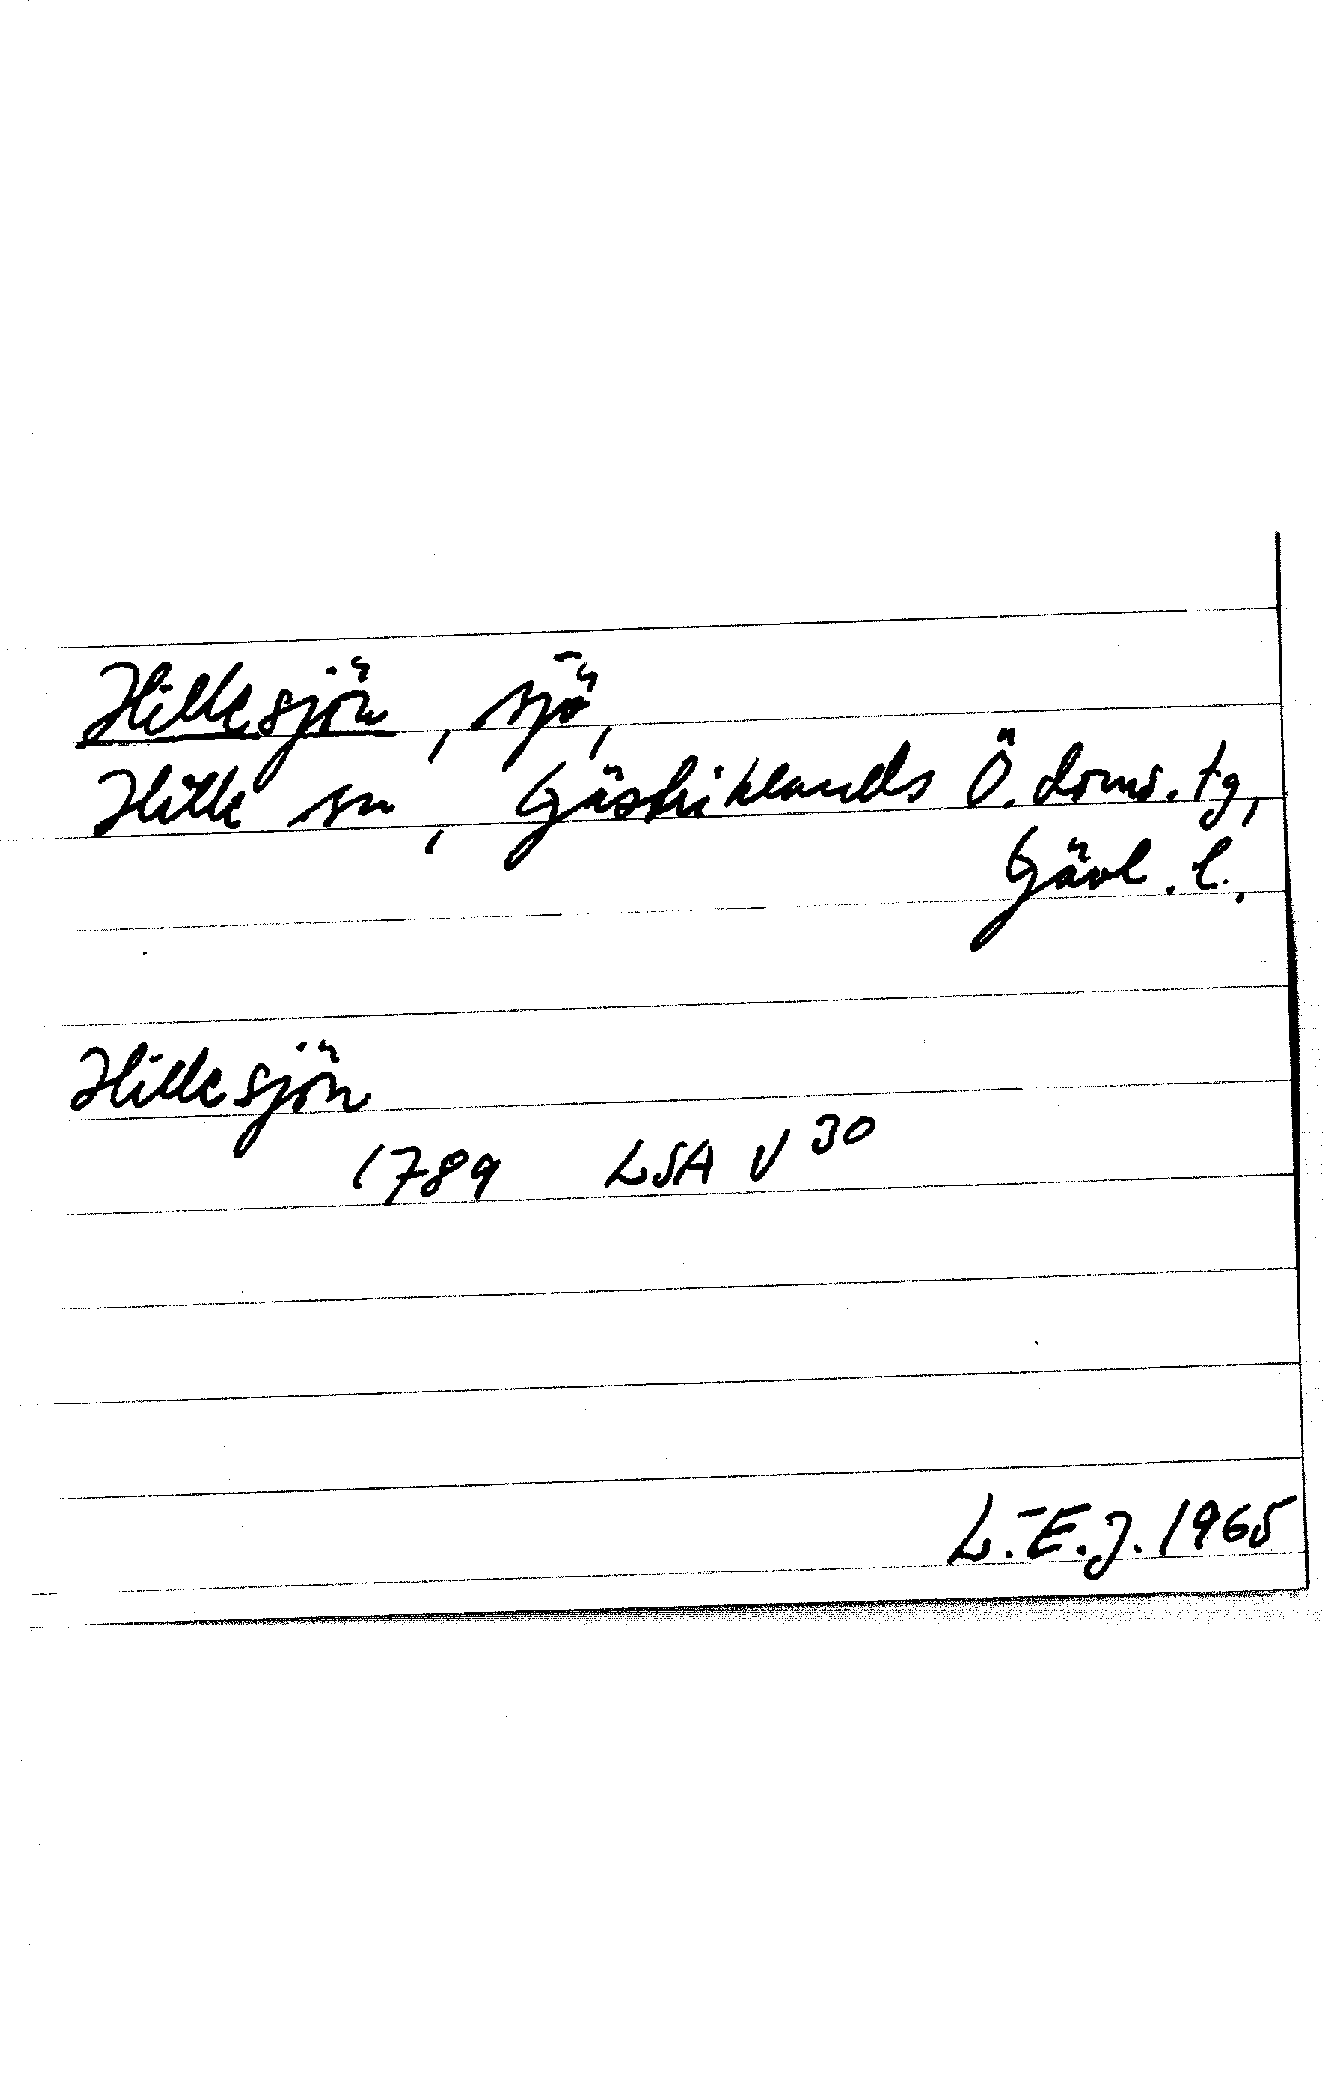 Hillesjön, sjö,
Hille sn, Gästriklands Ö. doms. tg,
Gävl. l.
Hillesjön
1789 LSA V 30
L.-E.J. 1965